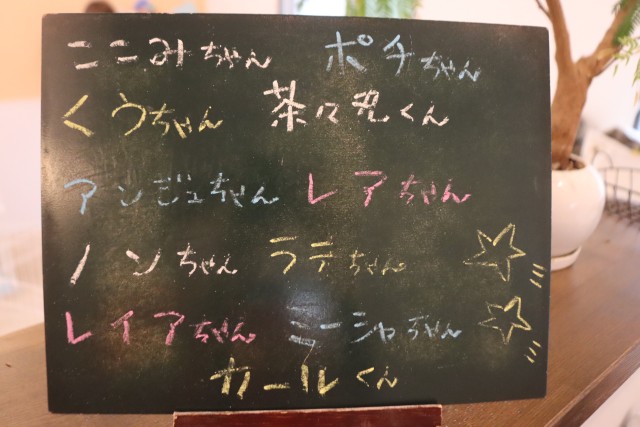 ここみちゃん ポチちゃん
くうちゃん 茶々丸くん
アンジュちゃん レアちゃん
ノンちゃん ラテちゃん
レイアちゃん ミーシャちゃん
カールくん